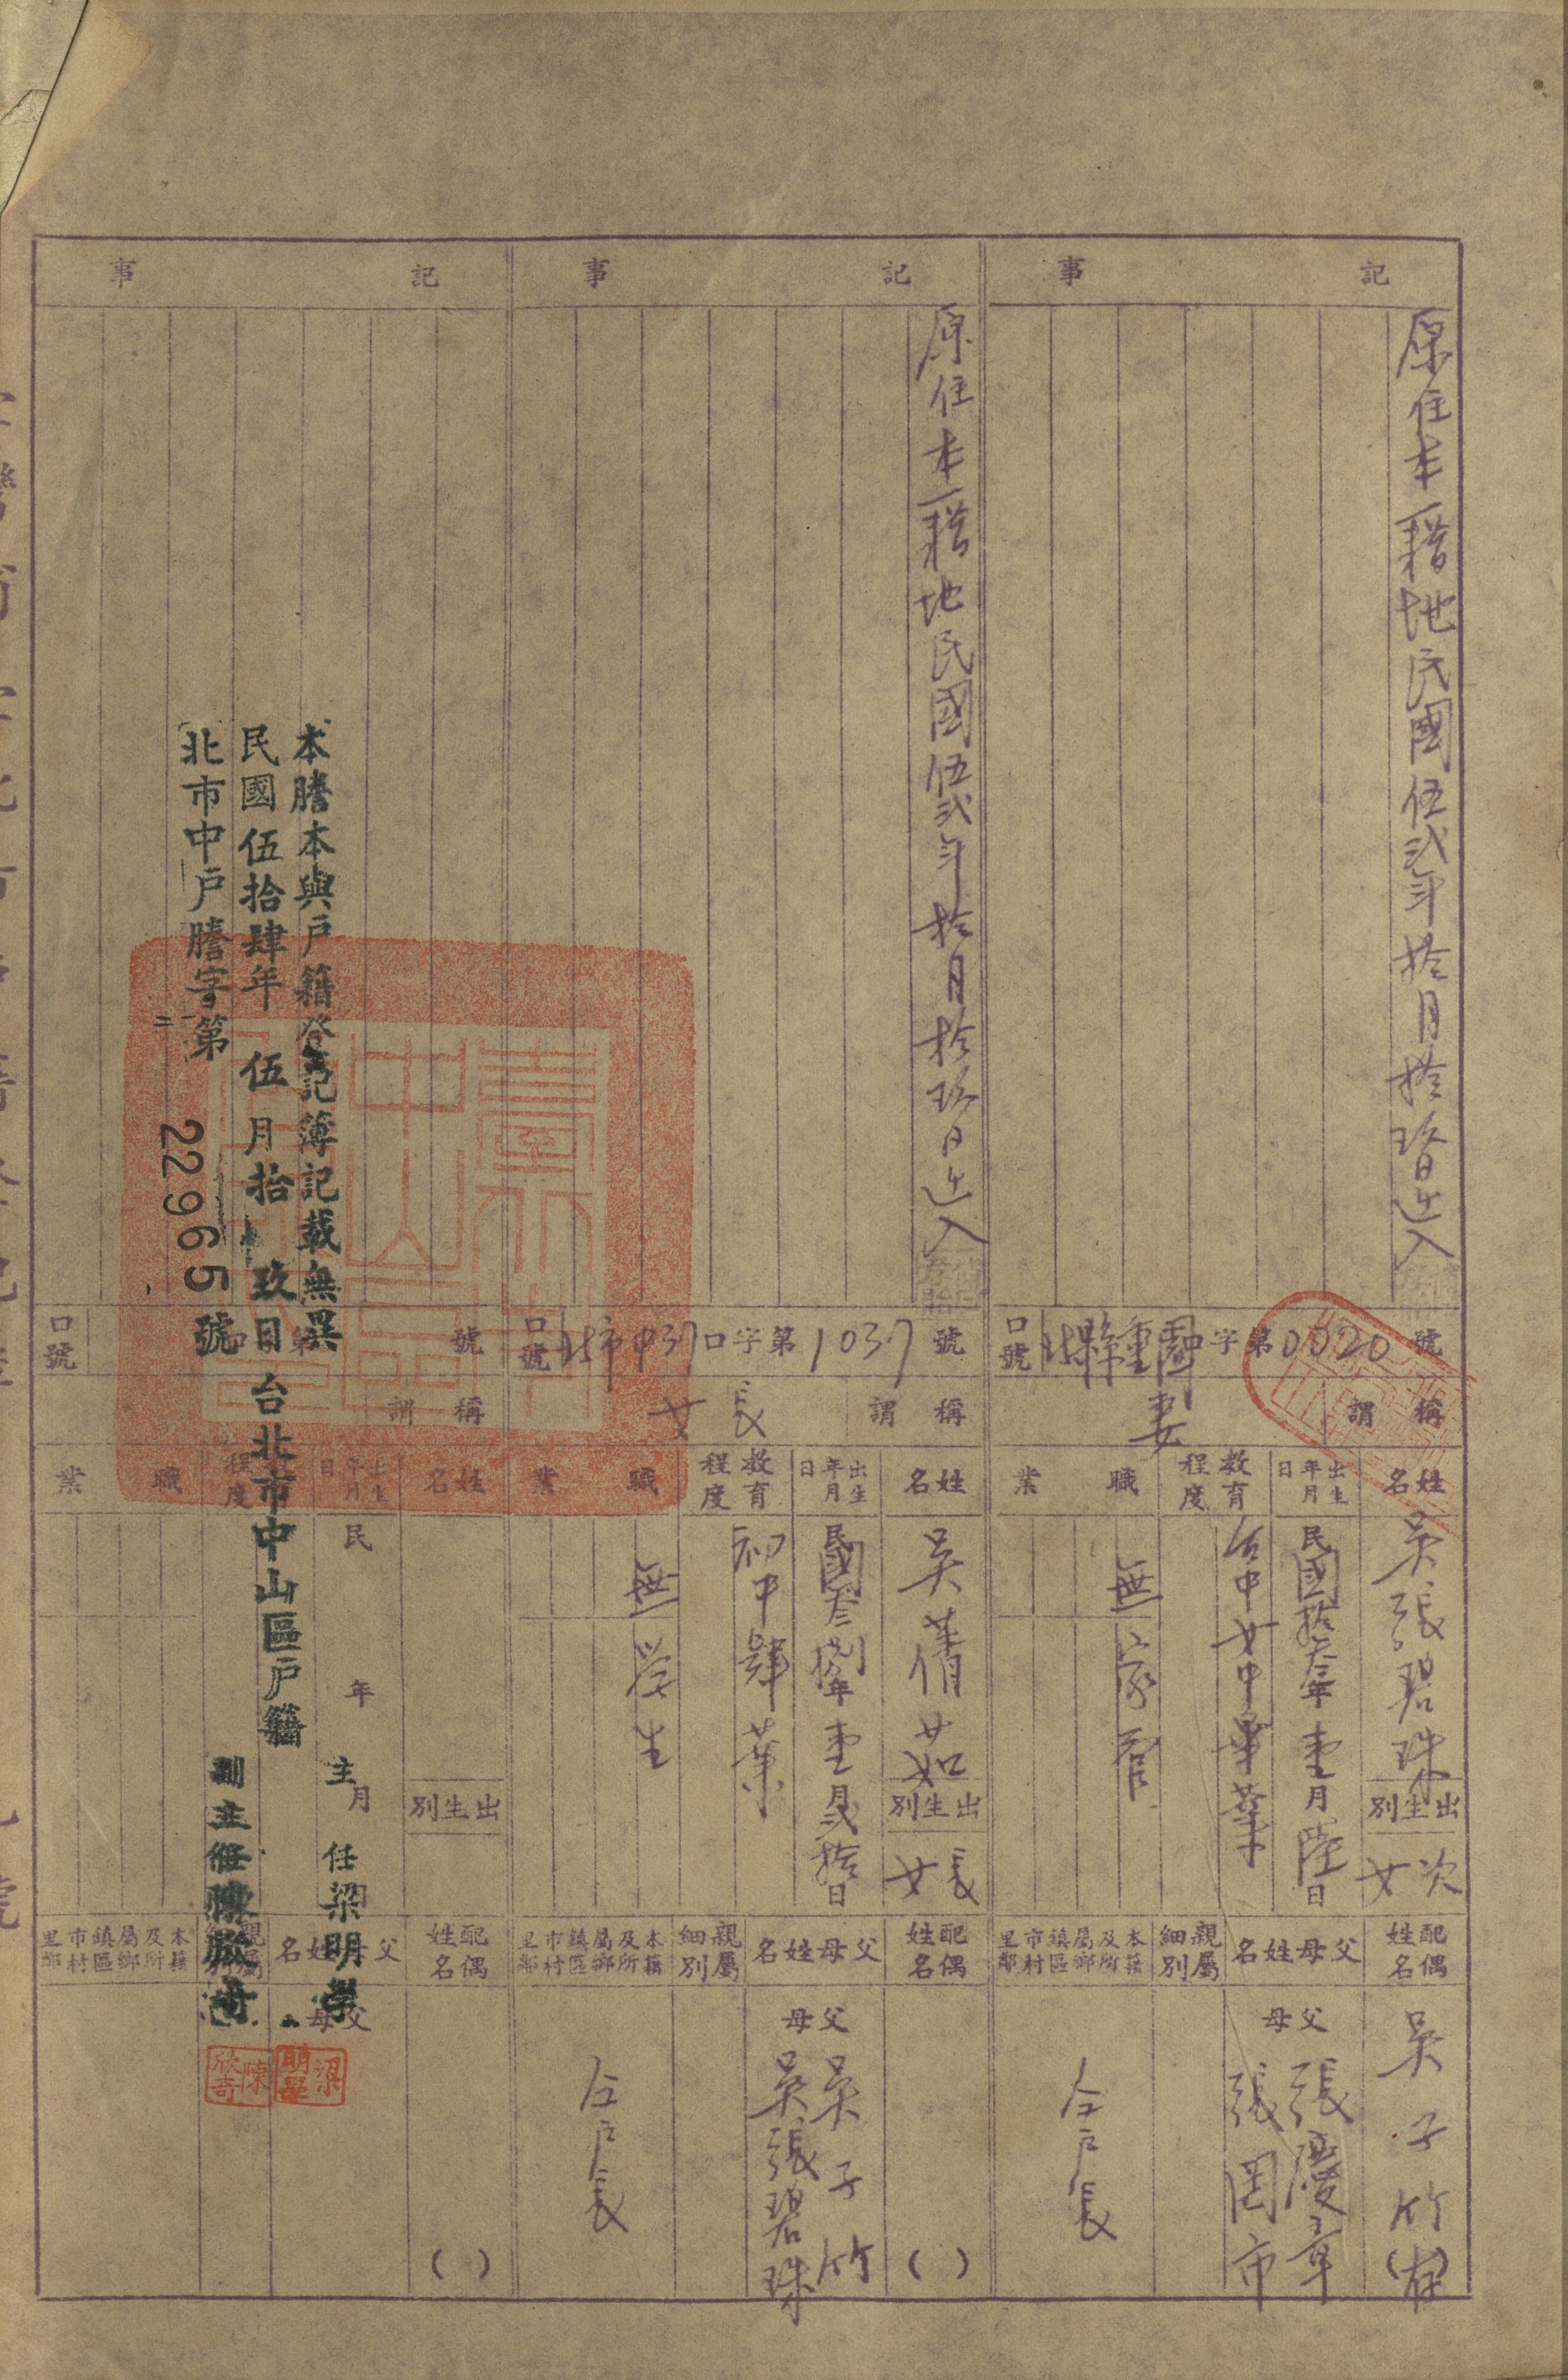 記事
原住本籍地民國伍弍年拾月拾玖日遷入
口號
北縣重國口字第0020號
稱謂
妻
姓名
吳張碧珠
出生別
次女
出生年月日
民國拾叁年壹月陸日
教育程度
台中女中畢業
職業
無
家管
配偶姓名
吳子竹(存)
父母姓名
父 張慶章
母 張罔市
親屬細別
本籍及所屬鄉鎮區市村里鄰
仝戶長
記事
原住本籍地民國伍弍年拾月拾玖日遷入
口號
北市中37口字第1037號
稱謂
長女
姓名
吳蒨茹
出生別
長女
出生年月日
民國叁捌年壹月弍拾日
教育程度
初中肄業
職業
無
學生
配偶姓名
( )
父母姓名
父 吳子竹
母 吳張碧珠
親屬細別
本籍及所屬鄉鎮區市村里鄰
仝戶長
記事
口號
第
號
稱謂
姓名
出生別
出生年月日
民 年 月
程度
職業
配偶姓名
( )
父母姓名
父母
親屬
本籍及所屬鄉鎮區市村里鄰
本謄本與戶籍登記簿記載無異
民國伍拾肆年伍月拾玖日
台北市中山區戶籍
主任梁明學
副主任陳欣奇
北市中戶謄字第22965號
陳欣奇